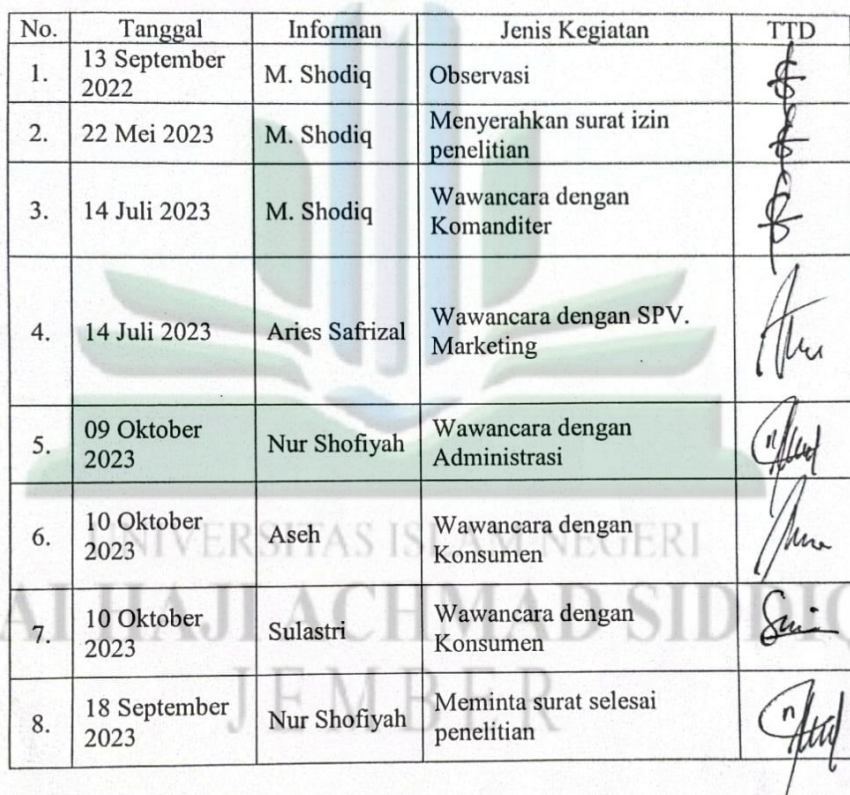 No. Tanggal Informan Jenis Kegiatan TTD
1. 13 September 2022 M. Shodiq Observasi
2. 22 Mei 2023 M. Shodiq Menyerahkan surat izin penelitian
3. 14 Juli 2023 M. Shodiq Wawancara dengan Komanditer
4. 14 Juli 2023 Aries Safrizal Wawancara dengan SPV. Marketing
5. 09 Oktober 2023 Nur Shofiyah Wawancara dengan Administrasi
6. 10 Oktober 2023 Aseh Wawancara dengan Konsumen
7. 10 Oktober 2023 Sulastri Wawancara dengan Konsumen
8. 18 September 2023 Nur Shofiyah Meminta surat selesai penelitian
UNIVERSITAS ISLAM NEGERI
HAJI ACHMAD SIDDIQ
JEMBER